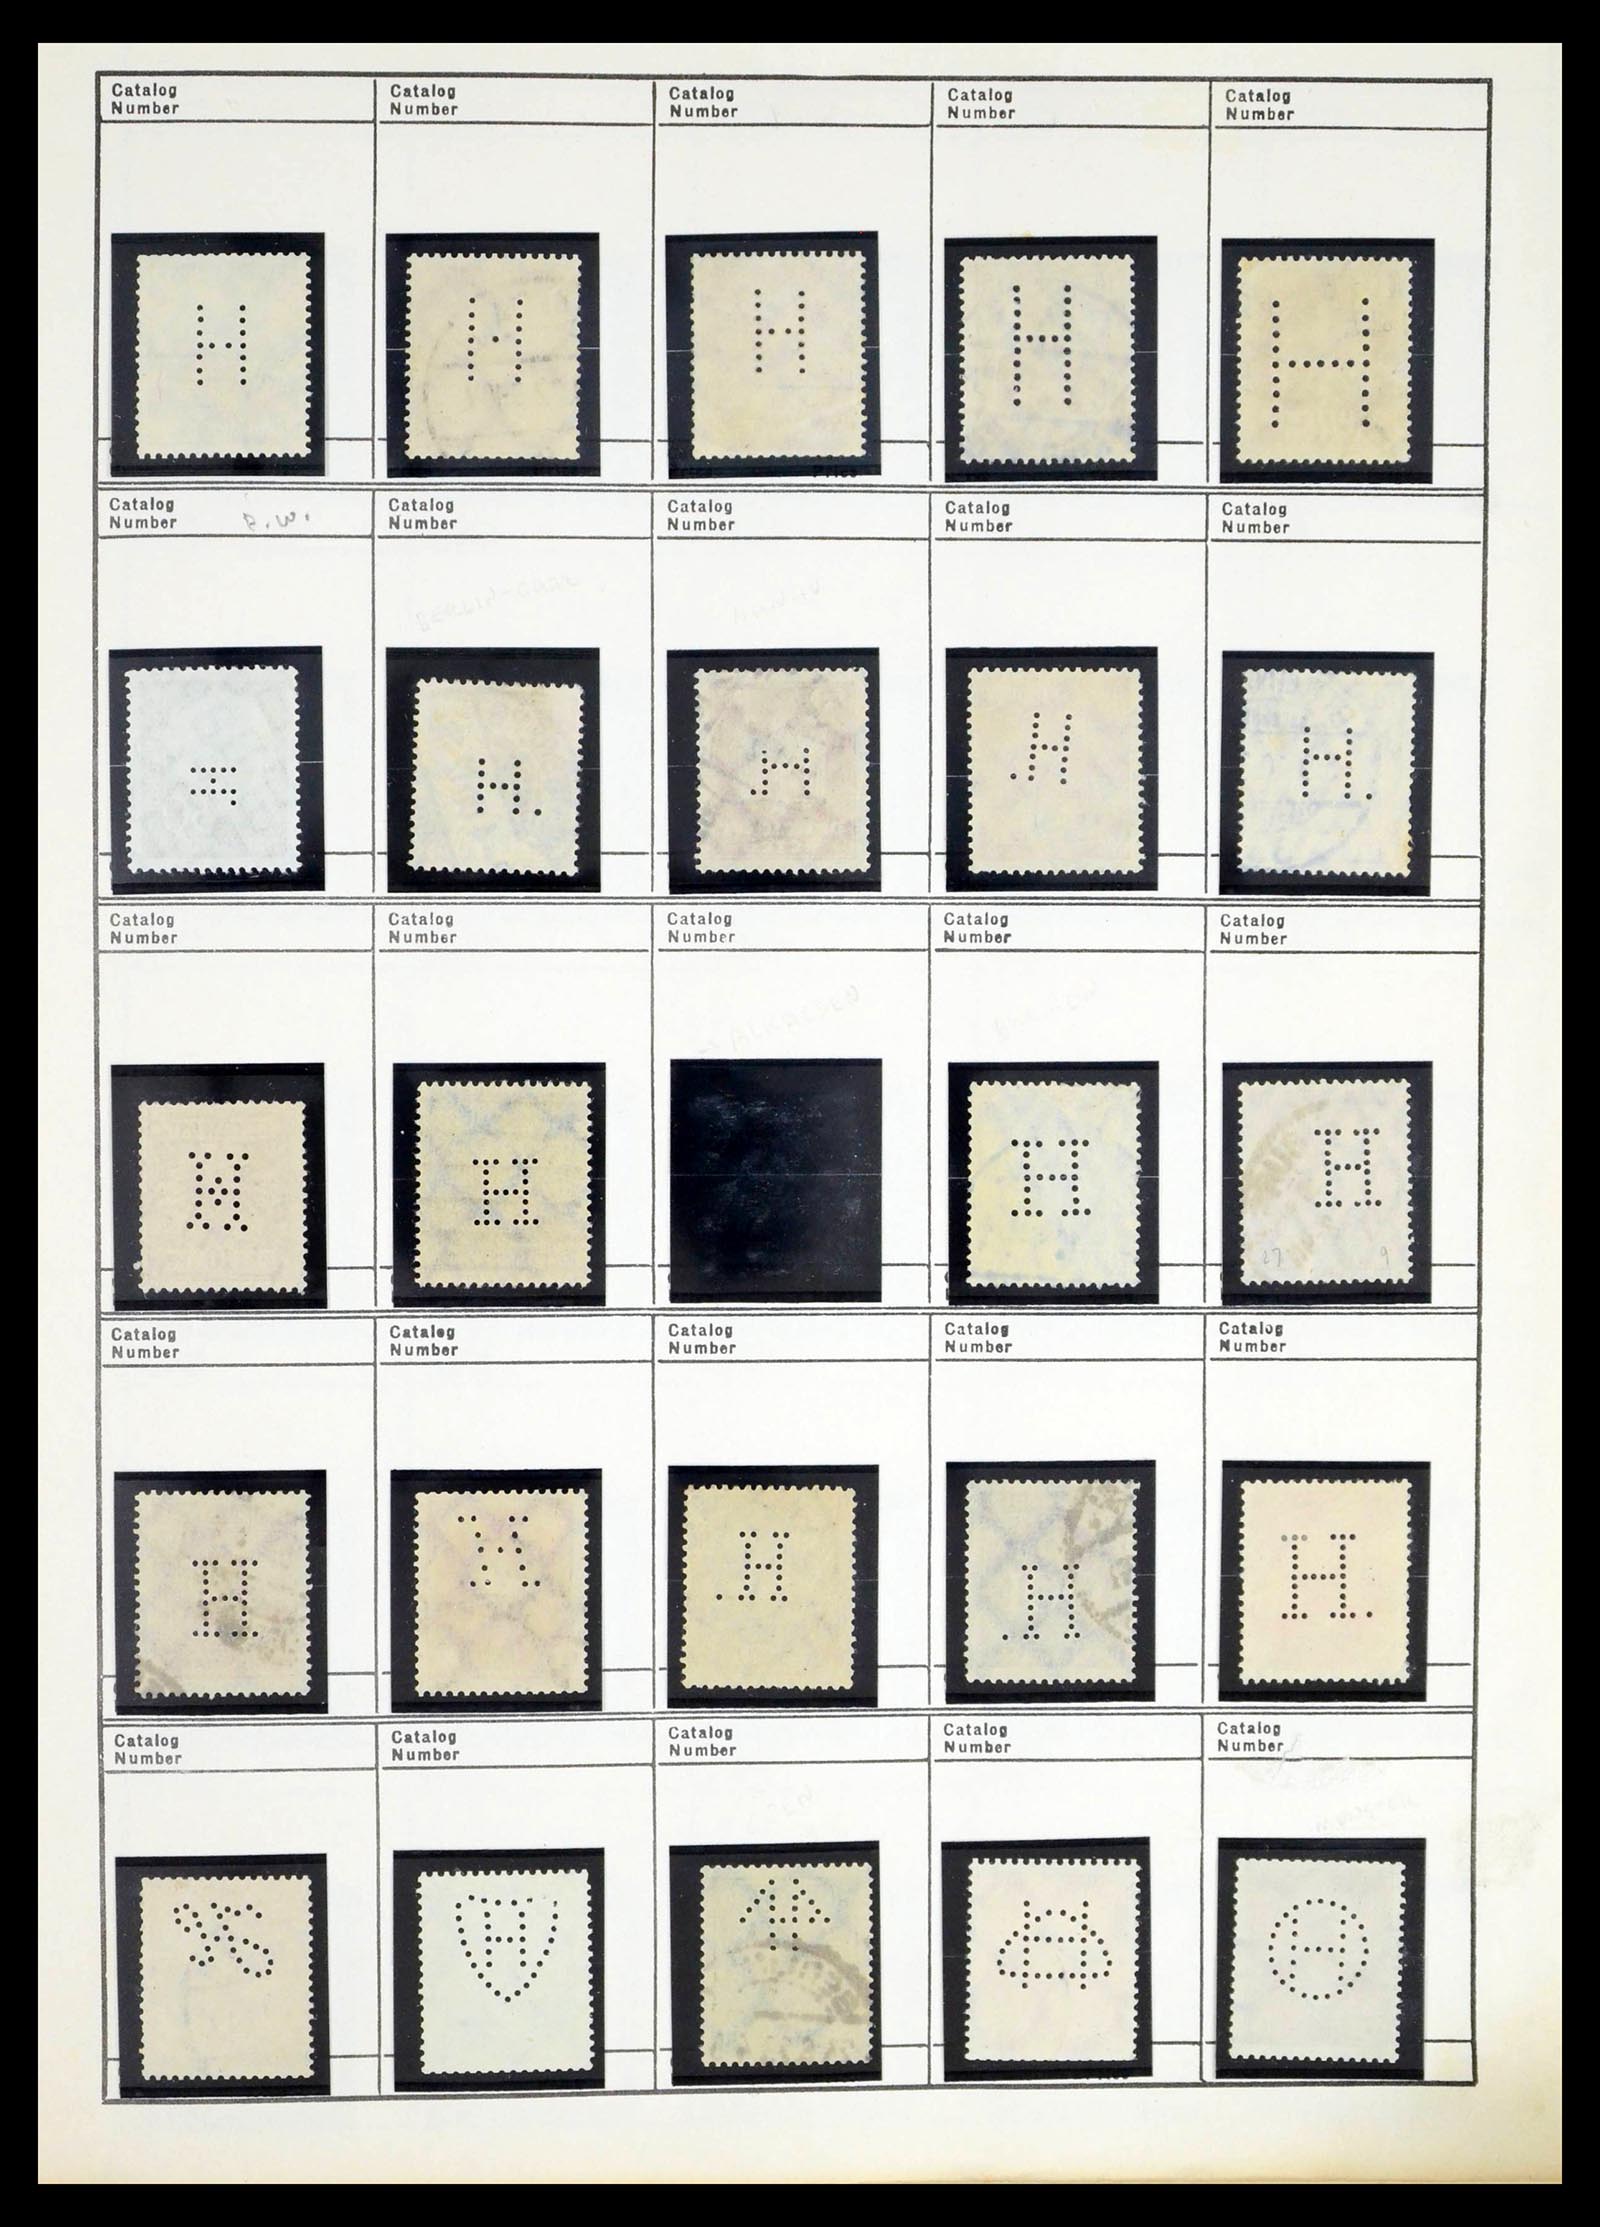 Catalog Number
Catalog Number
Catalog Number
Catalog Number
Catalog Number
H
H
H
H
H
Price
Catalog Number g.w.
Catalog Number
Catalog Number
Catalog Number
Catalog Number
BERLIN-CHAR
H.
H.
H.
H.
H.
Catalog Number
Catalog Number
Catalog Number
Catalog Number
Catalog Number
BREMEN
H
H
H
27 9
Catalog Number
Catalog Number
Catalog Number
Catalog Number
Catalog Number
H
H.
H.
H.
Catalog Number
Catalog Number
Catalog Number
Catalog Number
Catalog Number
H
H
H
BERLIN